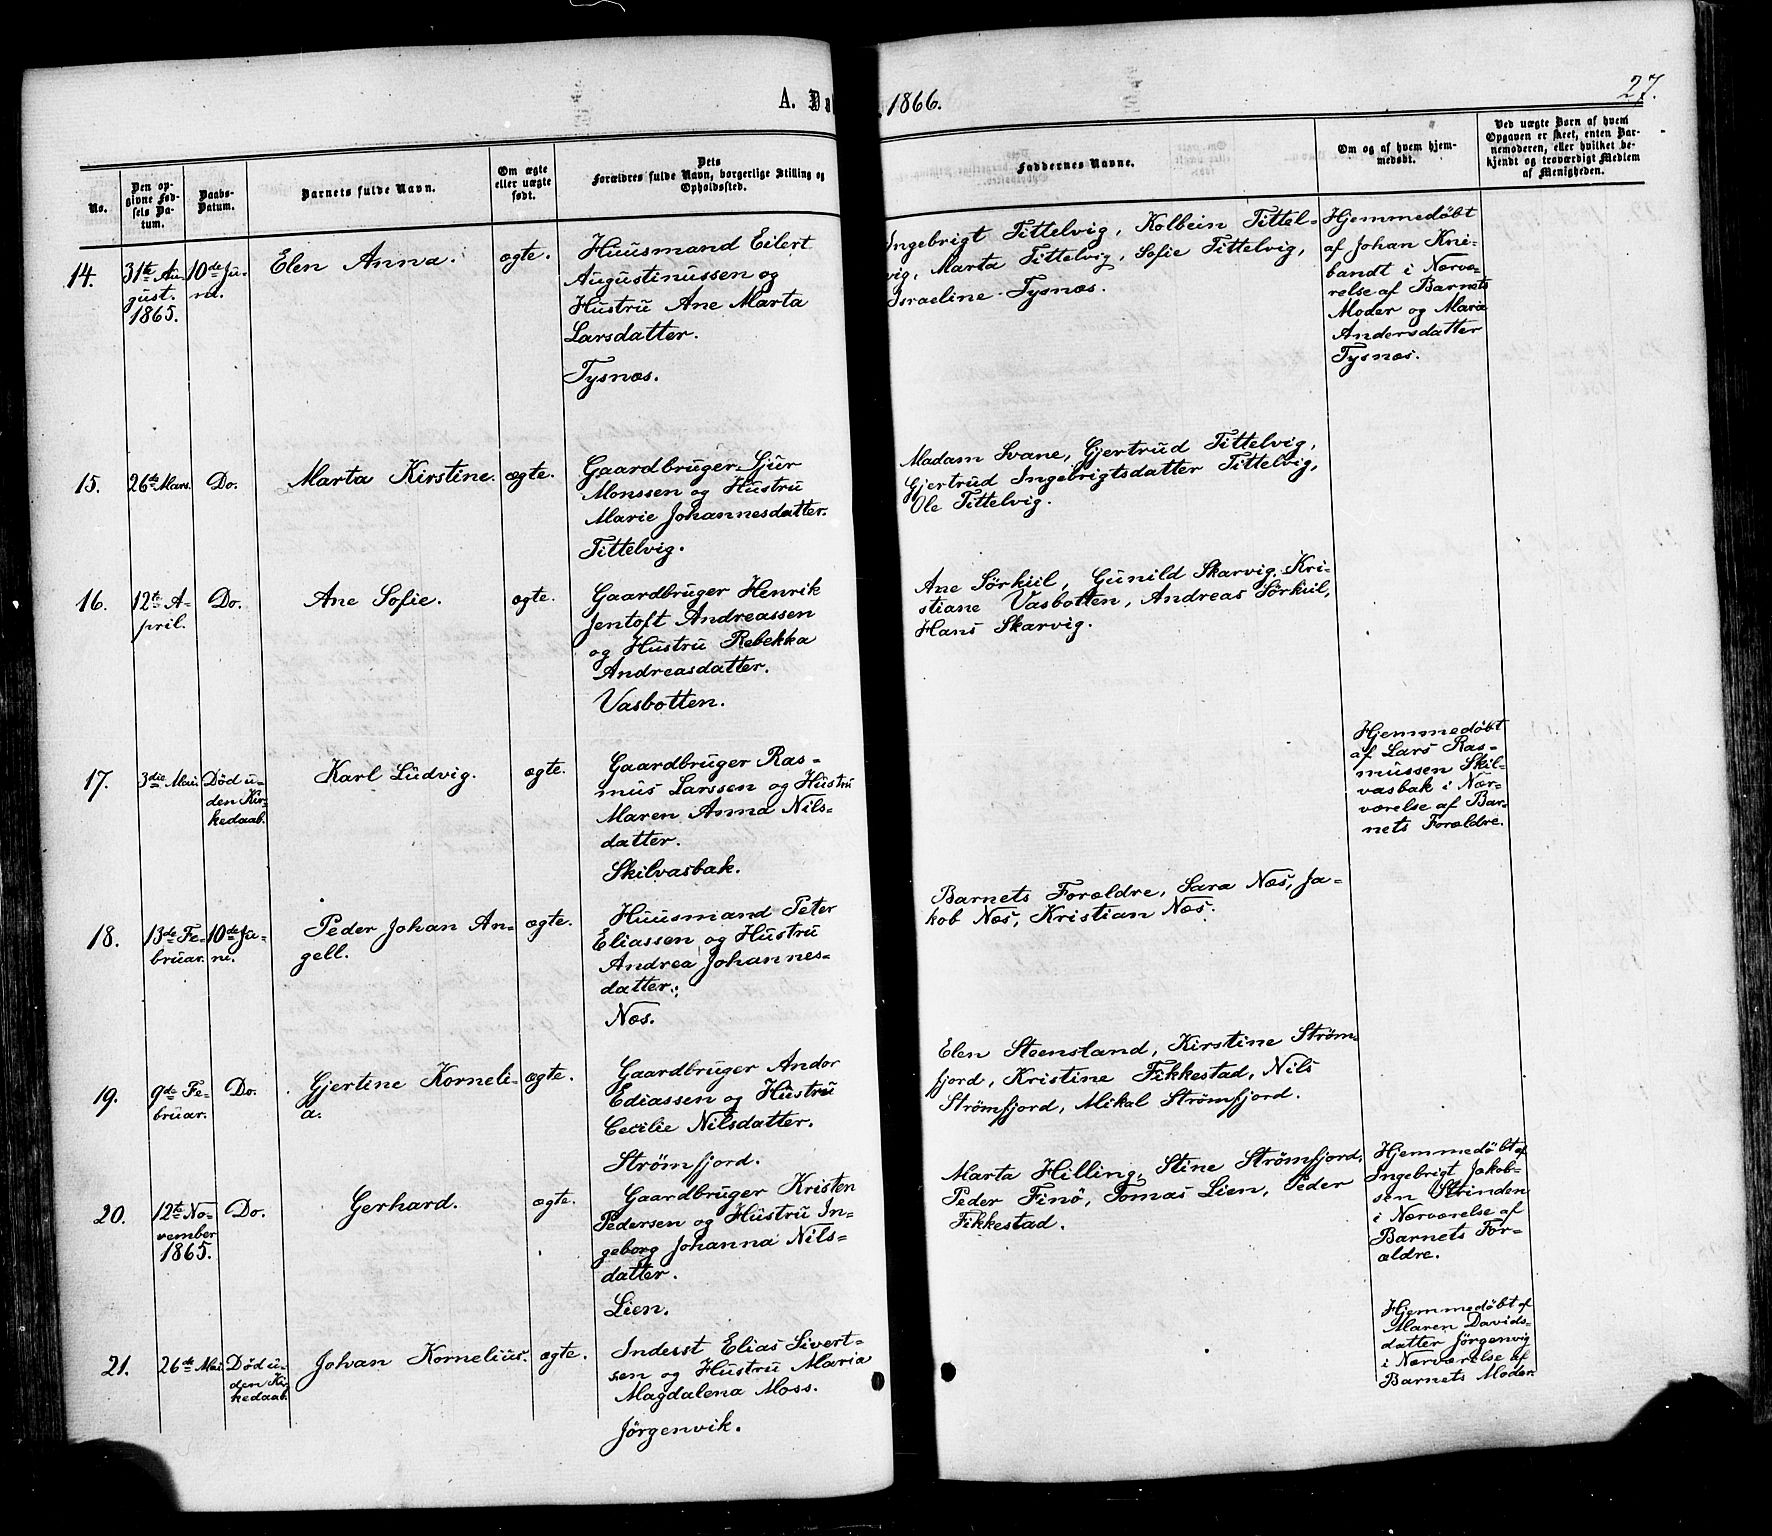 A. Dø
1866.
27.
No.
Den op-
givne Fød-
sels Da-
tum.
Daabs-
Datum.
Barnets fulde Navn.
Om ægte
eller uægte
født.
Dets
Forældres fulde Navn, borgerlige Stilling og
Opholdssted.
Faddernes Navne.
Om og af hvem hjem-
medøbt.
Ved uægte Børn af hvem
Opgaven er skeet, enten Bar-
nemoderen, eller hvilket be-
kjendt og troværdigt Medlem
af Menigheden.
14.
31te Au-
gust.
1865.
10de Ju-
ni.
Elen Anna.
ægte.
Huusmand Eilert
Augustinussen og
Hustru Ane Marta
Larsdatter.
Tysnæs.
Ingebrigt Tittelvig, Kolbein Tittel-
vig, Marta Tittelvig, Sofie Tittelvig,
Israeline Tysnæs.
Hjemmedøbt
af Johan Kni-
bandt i Nærvæ-
relse af Barnets
Moder og Maria
Andersdatter
Tysnæs.
15.
26de Mars.
Do.
Marta Kirstine.
ægte.
Gaardbruger Sjur
Monssen og Hustru
Marie Johannesdatter.
Tittelvig.
Madam Svane, Gjertrud Tittelvig,
Gjertrud Ingebrigtsdatter Tittelvig,
Ole Tittelvig.
16.
12te A-
pril.
Do.
Ane Sofie.
ægte.
Gaardbruger Henrik
Jentoft Andreassen
og Hustru Rebekka
Andreasdatter.
Vasbotten.
Ane Sörkiil, Gunild Skarvig, Kri-
stiane Vasbotten, Andreas Sörkiil,
Hans Skarvig.
17.
3die Mai.
Död u-
den Kir-
kedaab.
Karl Ludvig.
ægte.
Gaardbruger Ras-
mus Larssen og Hustru
Maren Anna Nils-
datter.
Skilvasbak.
Hjemmedöbt
af Lars Ras-
mussen Skil-
vasbak i Nær-
værelse af Bar-
nets Forældre.
18.
13de Fe-
bruar.
10de Ju-
ni.
Peder Johan An-
gell.
ægte.
Huusmand Peter
Eliassen og Hustru
Andrea Johannes-
datter.
Næs.
Barnets Forældre, Sara Næs, Ja-
kob Næs, Kristian Næs.
19.
9de Fe-
bruar.
Do.
Gjertine Korneli-
a.
ægte.
Gaardbruger Andor
Ediassen og Hustru
Cecilie Nilsdatter.
Strömfjord.
Elen Steensland, Kirstine Ström-
fjord, Kristine Fikkestad, Nils
Strömfjord, Mikal Strömfjord.
20.
12te No-
vember
1865.
Do.
Gerhard.
ægte.
Gaardbruger Kristen
Pedersen og Hustru In-
geborg Johanna Nils-
datter.
Lien.
Marta Hilling, Stine Strömfjord,
Peder Finö, Tomas Lien, Peder
Fikkestad.
Hjemmedöbt af
Ingebrigt Jakob-
sen Strinden
i Nærværelse af
Barnets For-
ældre.
21.
26de Mai.
Död u-
den Kir-
kedaab.
Johan Kornelius.
ægte.
Inderst Elias Sivert-
sen og Hustru Maria
Magdalena Moss.
Jörgenvik.
Hjemmedöbt af
Maren Davids-
datter Jörgenvig
i Nærværelse af
Barnets Moder.